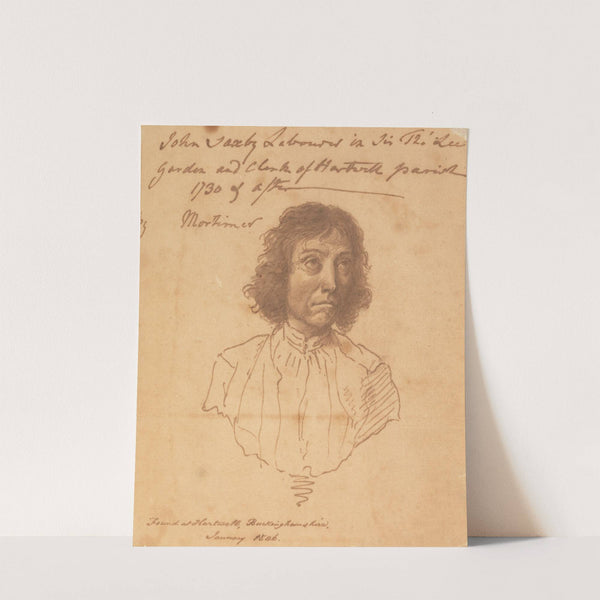 John Saxby Labourer in Sir Tho.s Lee
Garden and Clerk of Hartwell parish
1730 & after
by Mortimer
Found at Hartwell, Buckinghamshire,
January 1846.